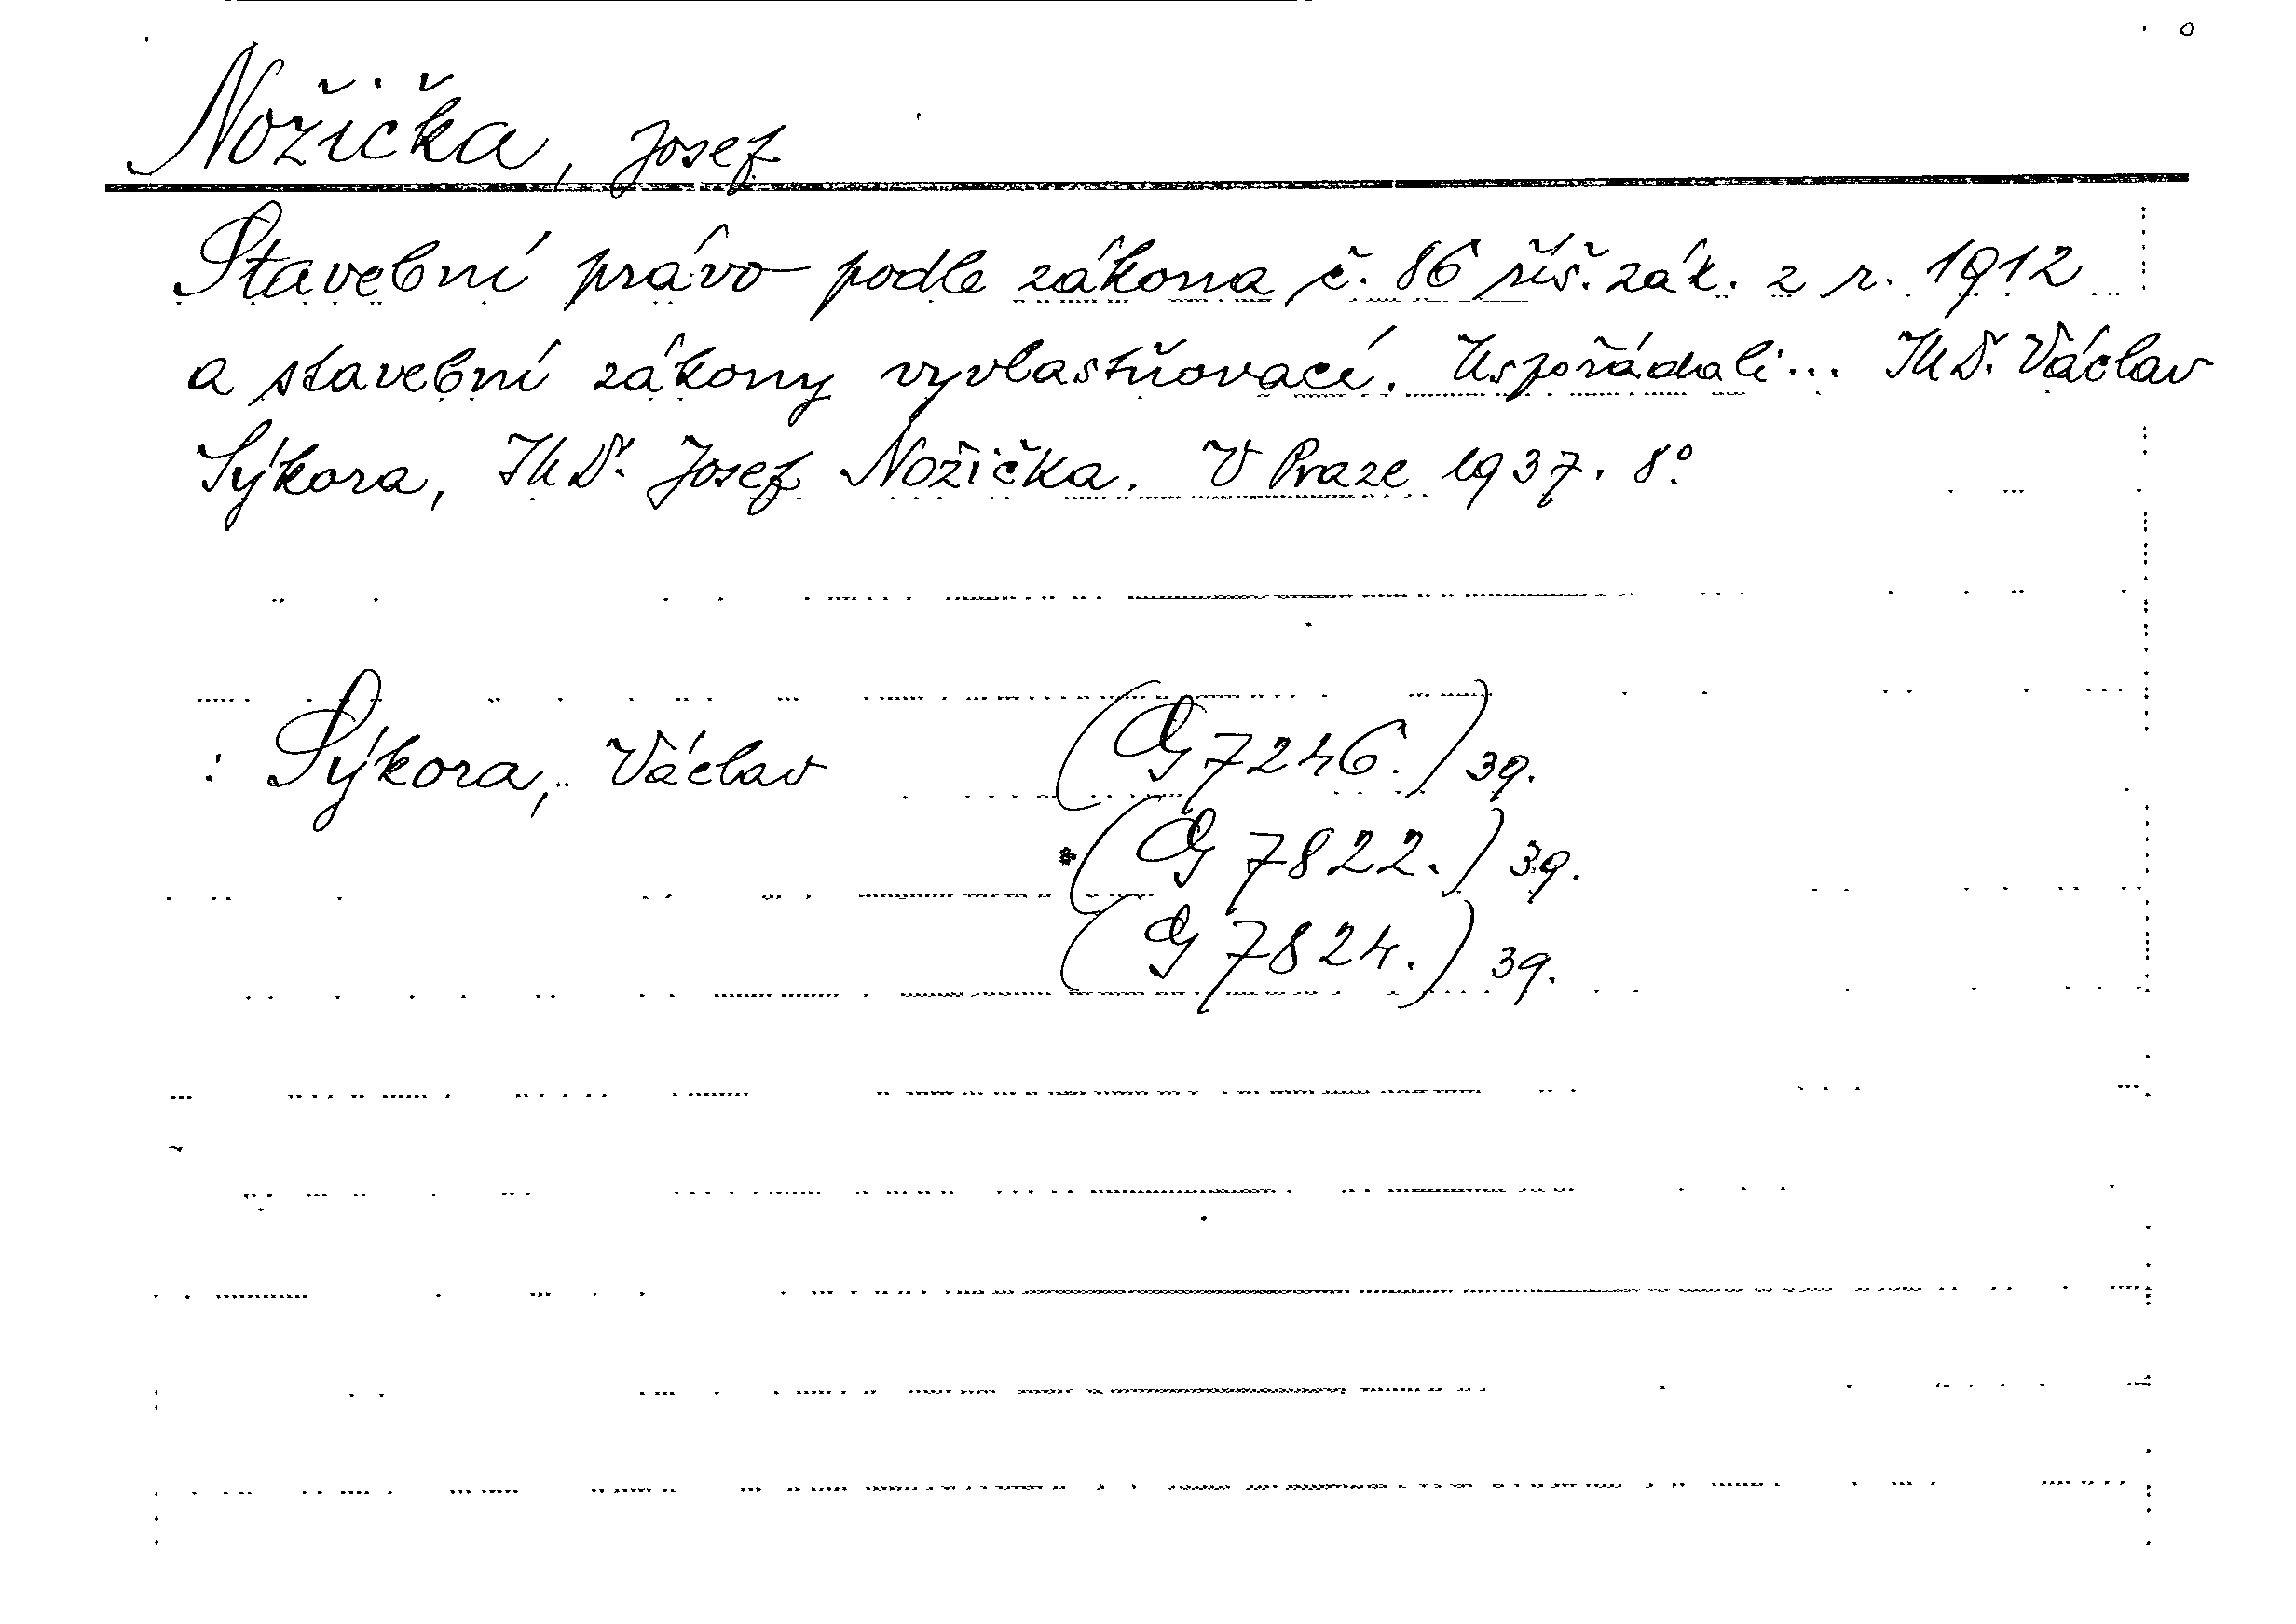 Nožička, Josef
Stavební právo podle zákona č. 86 říš. zák. z r. 1912
a stavební zákony vyvlastňovací. Uspořádali... JUDr. Václav
Sýkora, JUDr. Josef Nožička. V Praze 1937. 8°.
: Sýkora, Václav (G 7246.) 39.
*(G 7822.) 39.
(G 7824.) 39.